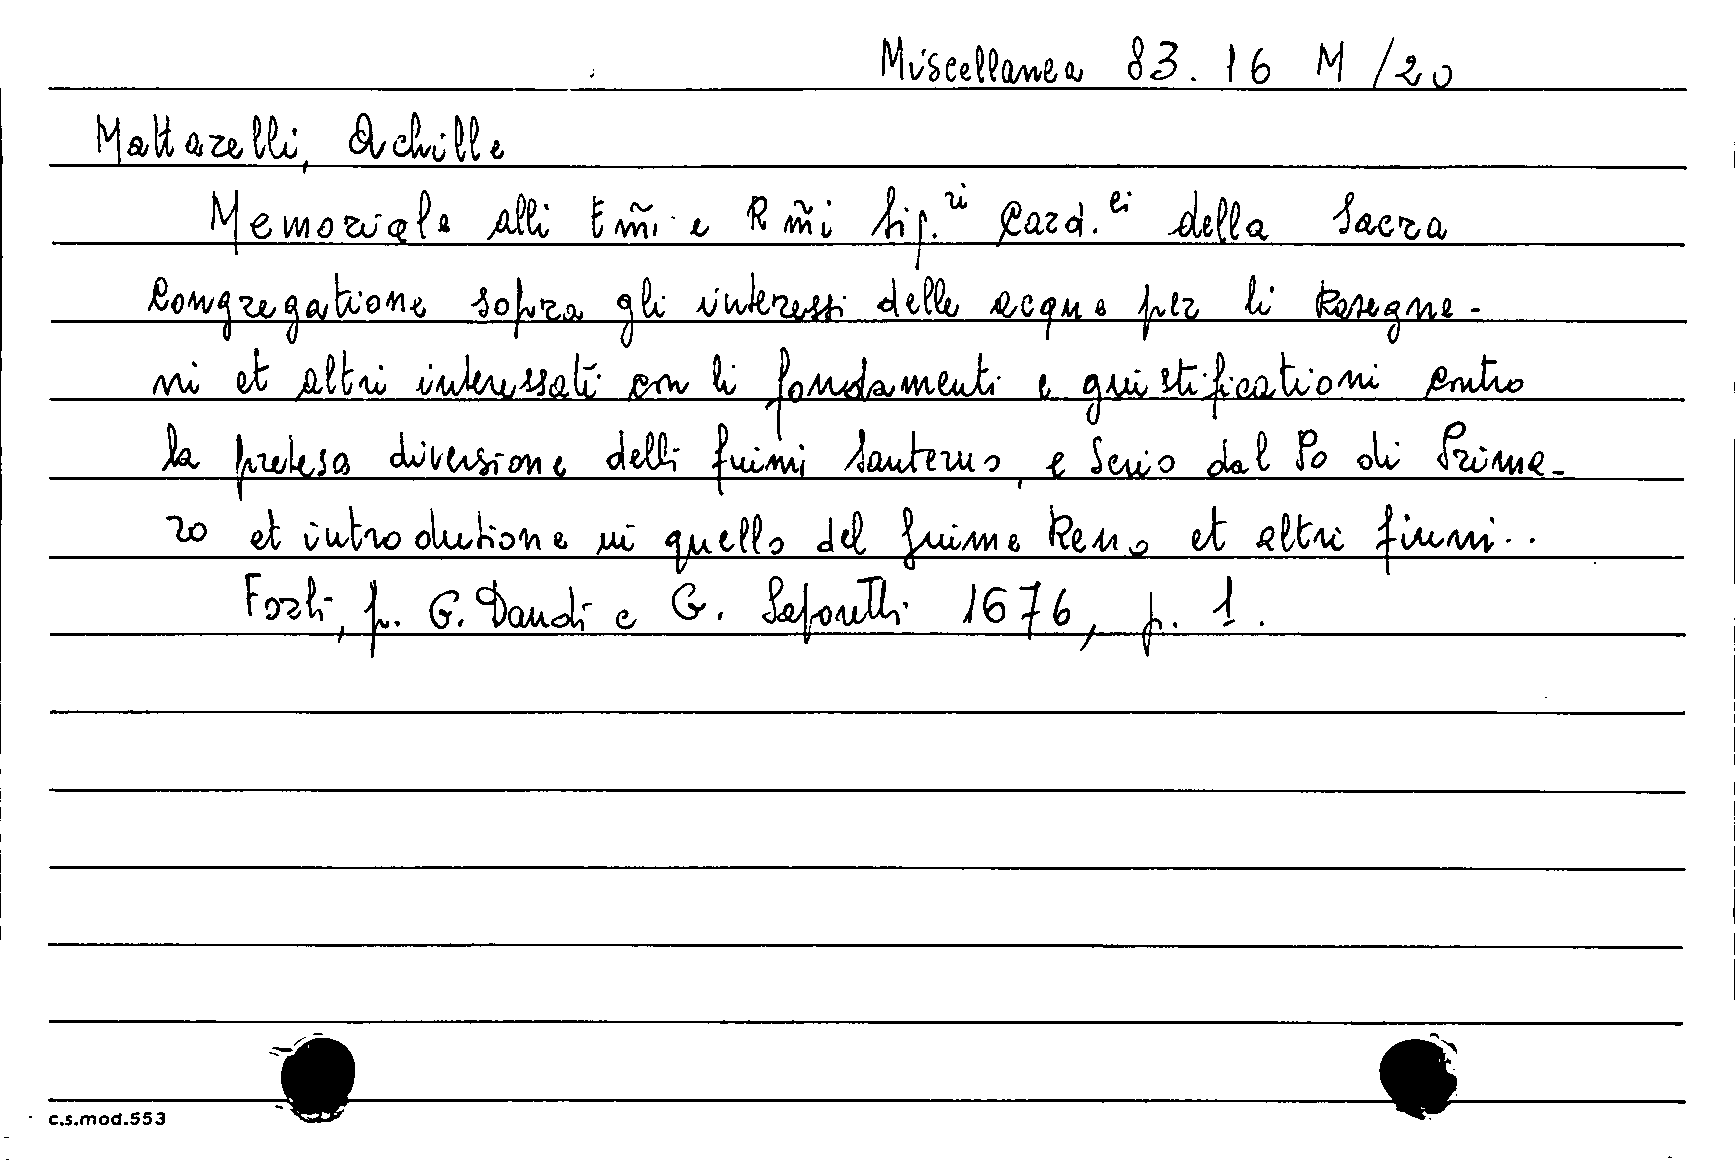 Miscellanea 83. 16 M /20
Mattarelli, Achille
Memoriale alli Em̃i e Rm̃i Sig.ri Card.li della Sacra
Congregatione sopra gli interessi delle acque per li Rasegne-
ni et altri interessati con li fondamenti e giustificationi contro
la pretesa diversione delli fiumi Santerno, e Senio dal Po di Prima-
ro et introdutione in quello del fiume Reno et altri fiumi..
Forlì, p. G. Dandi e G. Saporetti 1676, p. 1.
c.s.mod.553